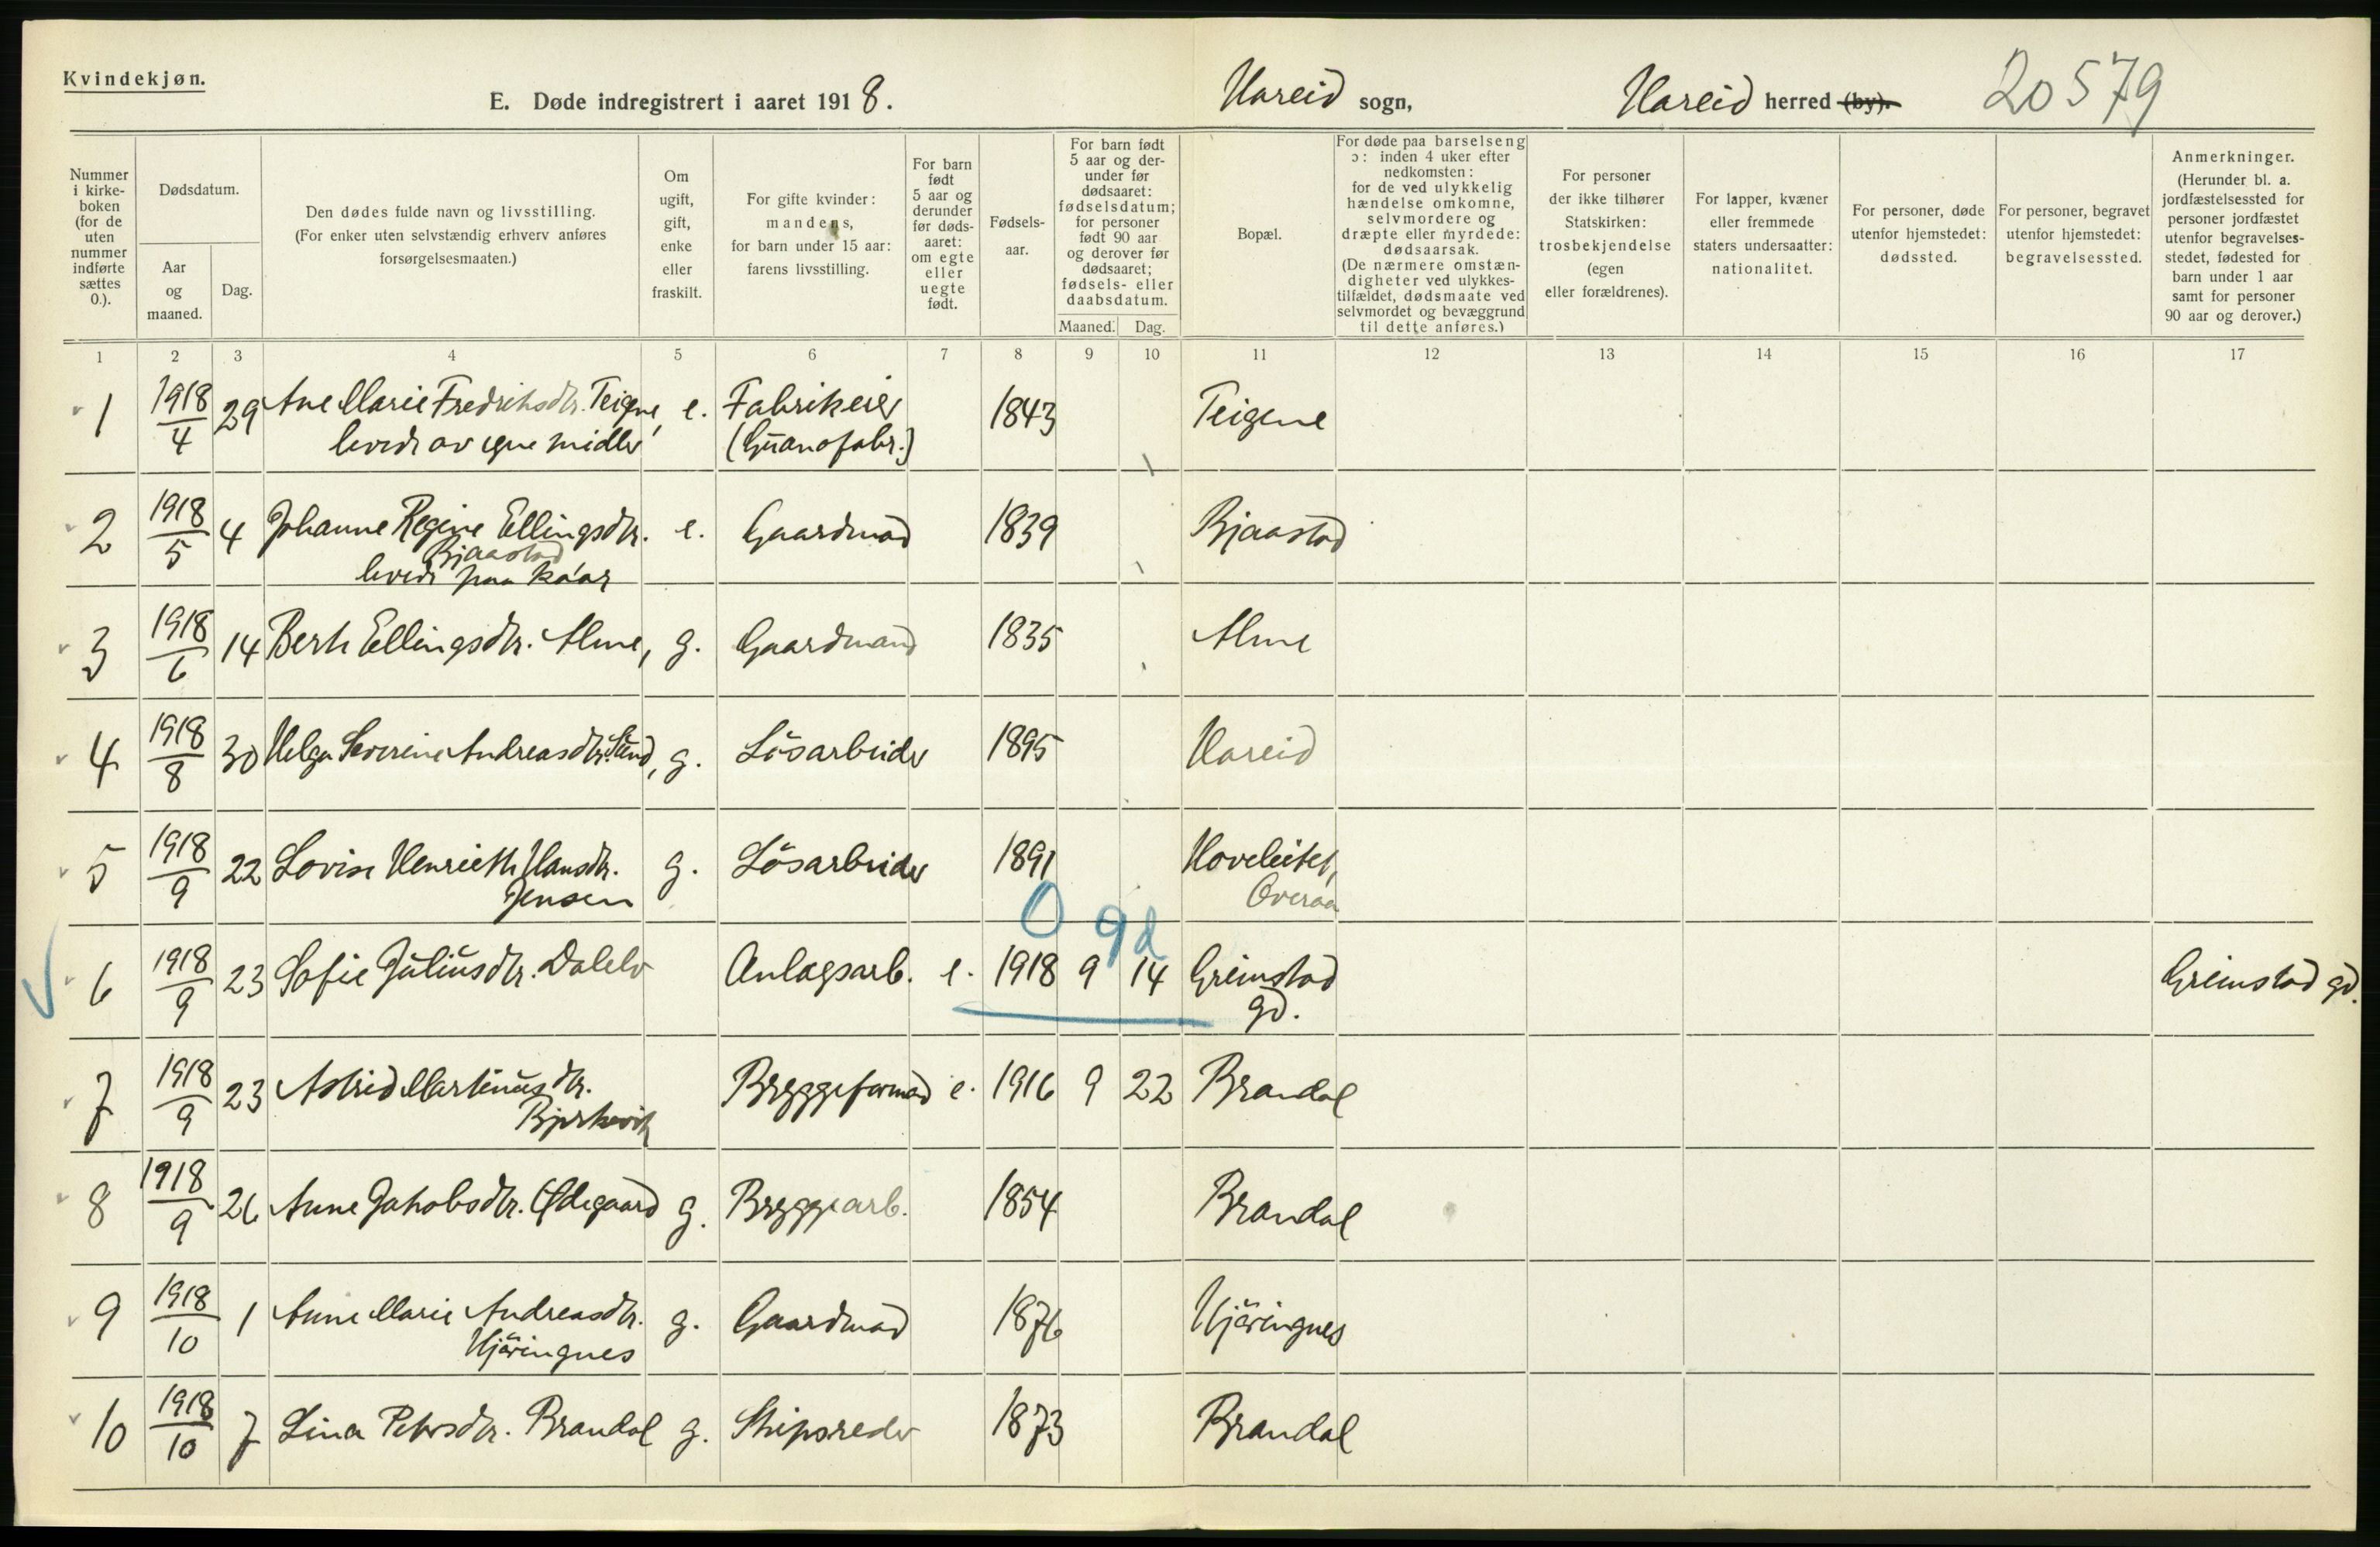 Kvindekjøn.
E. Døde indregistrert i aaret 1918.
Hareid sogn,
Hareid herred (by).
20579
Nummer i kirke-boken (for de uten nummer indførte sættes 0.).
Dødsdatum.
Aar og maaned.
Dag.
Den dødes fulde navn og livsstilling.
(For enker uten selvstændig erhverv anføres
forsørgelsesmaaten.)
Om ugift, gift, enke eller fraskilt.
For gifte kvinder:
mandens,
for barn under 15 aar:
farens livsstilling.
For barn født 5 aar og derunder før døds-aaret: om egte eller uegte født.
Fødsels-aar.
For barn født 5 aar og der-under før dødsaaret: fødselsdatum; for personer født 90 aar og derover før dødsaaret; fødsels- eller daabsdatum.
Maaned.
Dag.
Bopæl.
For døde paa barselseng ɔ: inden 4 uker efter nedkomsten: for de ved ulykkelig hændelse omkomne, selvmordere og dræpte eller myrdede: dødsaarsak. (De nærmere omstæn-digheter ved ulykkes-tilfældet, dødsmaate ved selvmordet og bevæggrund til dette anføres.)
For personer der ikke tilhører Statskirken: trosbekjendelse (egen eller forældrenes).
For lapper, kvæner eller fremmede staters undersaatter: nationalitet.
For personer, døde utenfor hjemstedet: dødssted.
For personer, begravet utenfor hjemstedet: begravelsessted.
Anmerkninger. (Herunder bl. a. jordfæstelsessted for personer jordfæstet utenfor begravelses-stedet, fødested for barn under 1 aar samt for personer 90 aar og derover.)
1 2 3 4 5 6 7 8 9 10 11 12 13 14 15 16 17
1 1918/4 29 Ane Marie Fredriksdtr. Teigene, e. Fabrikeier 1843 Teigene
levede av egne midler (Guanofabr.)
2 1918/5 4 Johanne Regine Ellingsdtr. e. Gaardmad 1839 Bjaastad
Bjaastad
levede paa kaar
3 1918/6 14 Berte Ellingsdtr. Alme, g. Gaardmand 1835 Alme
4 1918/8 30 Helga Severine Andreasdtr. , g. Løsarbeider 1895 Hareid
5 1918/9 22 Lovise Henriette Hansdtr. g. Løsarbeider 1891 Hoveleitet,
Jensen Overaa
0 9d
6 1918/9 23 Sofie Juliusdtr. Dalelv Anlægsarb. e. 1918 9 14 Grimstad Grimstad gd.
gd.
7 1918/9 23 Astrid Martinusdtr. Bryggeformad e. 1916 9 22 Brandal
Bjørkevik
8 1918/9 26 Anne Jakobsdtr. Ødegaard g. Bryggearb. 1854 Brandal
9 1918/10 1 Anne Marie Andreasdtr. g. Gaardmad 1876 Hjøringnes
Hjøringnes
10 1918/10 7 Lina Petersdtr. Brandal g. Skipsreder 1873 Brandal